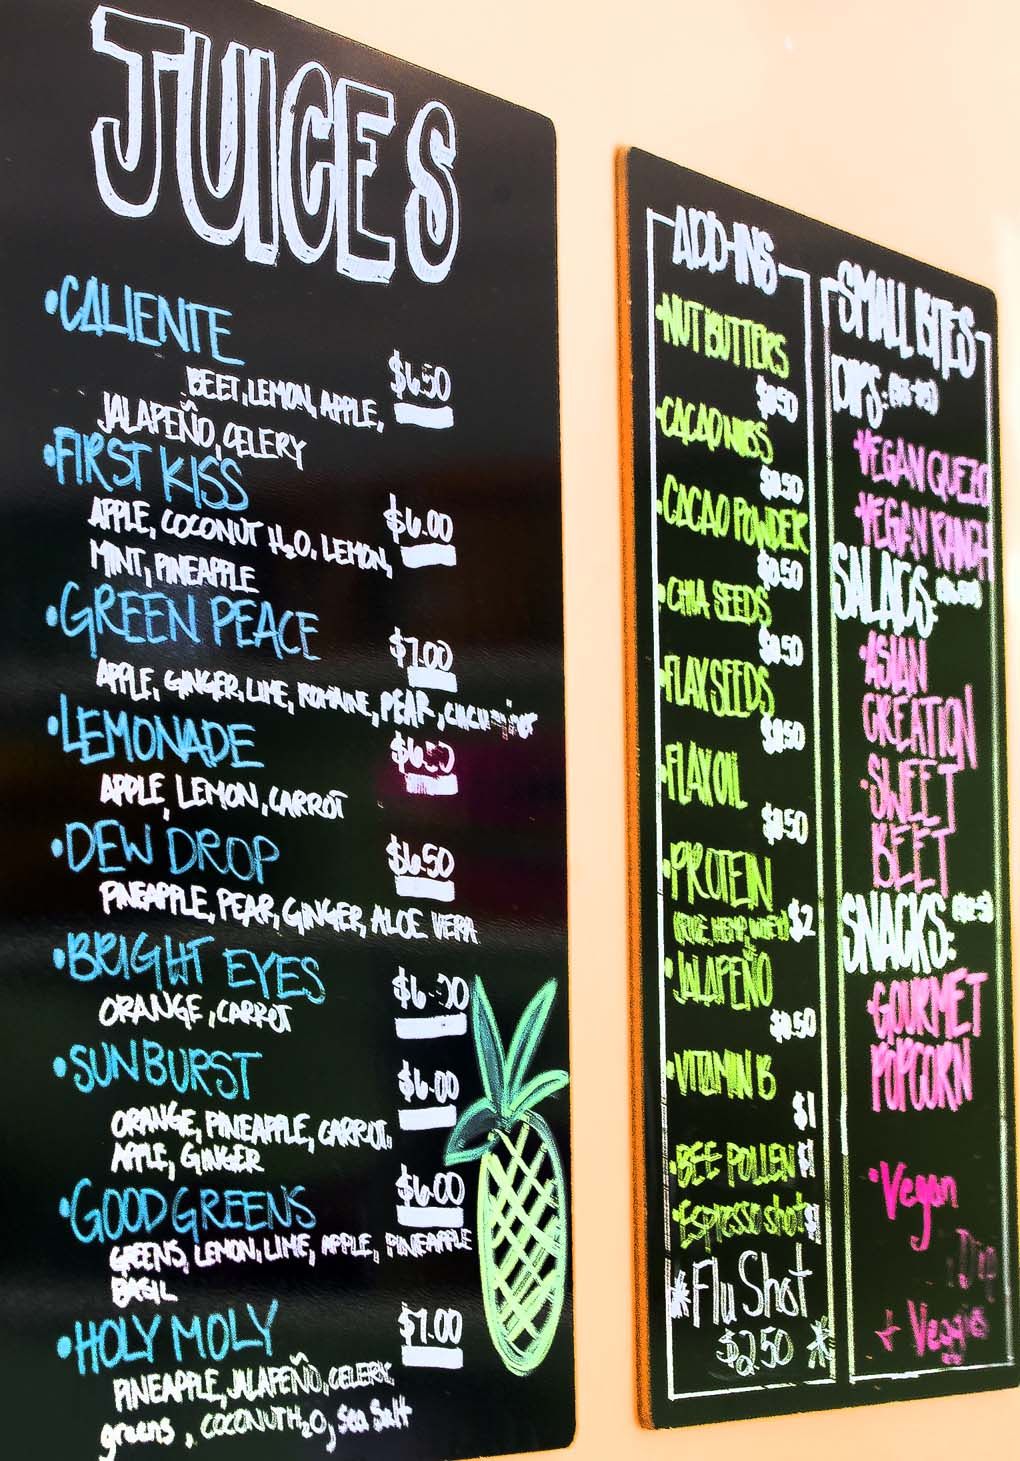 JUICES
•CALIENTE
$6.50
BEET, LEMON, APPLE,
JALAPEÑO, CELERY
•FIRST KISS
$6.00
APPLE, COCONUT H2O, LEMON,
MINT, PINEAPPLE
•GREEN PEACE
$7.00
APPLE, GINGER, LIME, ROMAINE, PEAR,
•LEMONADE
$6.50
APPLE, LEMON, CARROT
•DEW DROP
$6.50
PINEAPPLE, PEAR, GINGER, ALOE VERA
•BRIGHT EYES
ORANGE, CARROT
•SUNBURST
$6.00
ORANGE, PINEAPPLE, CARROT,
APPLE, GINGER
•GOOD GREENS
$6.00
GREENS, LEMON, LIME, APPLE, PINEAPPLE
BASIL
•HOLY MOLY
$7.00
PINEAPPLE, JALAPEÑO, CELERY,
greens, COCONUT H2O, Sea Salt
ADD-INS
•NUT BUTTERS
$0.50
•CACAO NIBS
$0.50
•CACAO POWDER
$0.50
•CHIA SEEDS
$0.50
•FLAX SEEDS
$0.50
•FLAX OIL
$0.50
•PROTEIN
$2
•JALAPEÑO
$0.50
•VITAMIN B
$1
•BEE POLLEN $1
•Espresso shot $1
*Flu Shot
$2.50 *
SMALL BITES
DIPS:
•VEGAN QUEZO
•VEGAN RANCH
SALADS:
•ASIAN
CREATION
•SWEET
BEET
SNACKS:
•GOURMET
POPCORN
•Vegan
Dip
+ Veggie